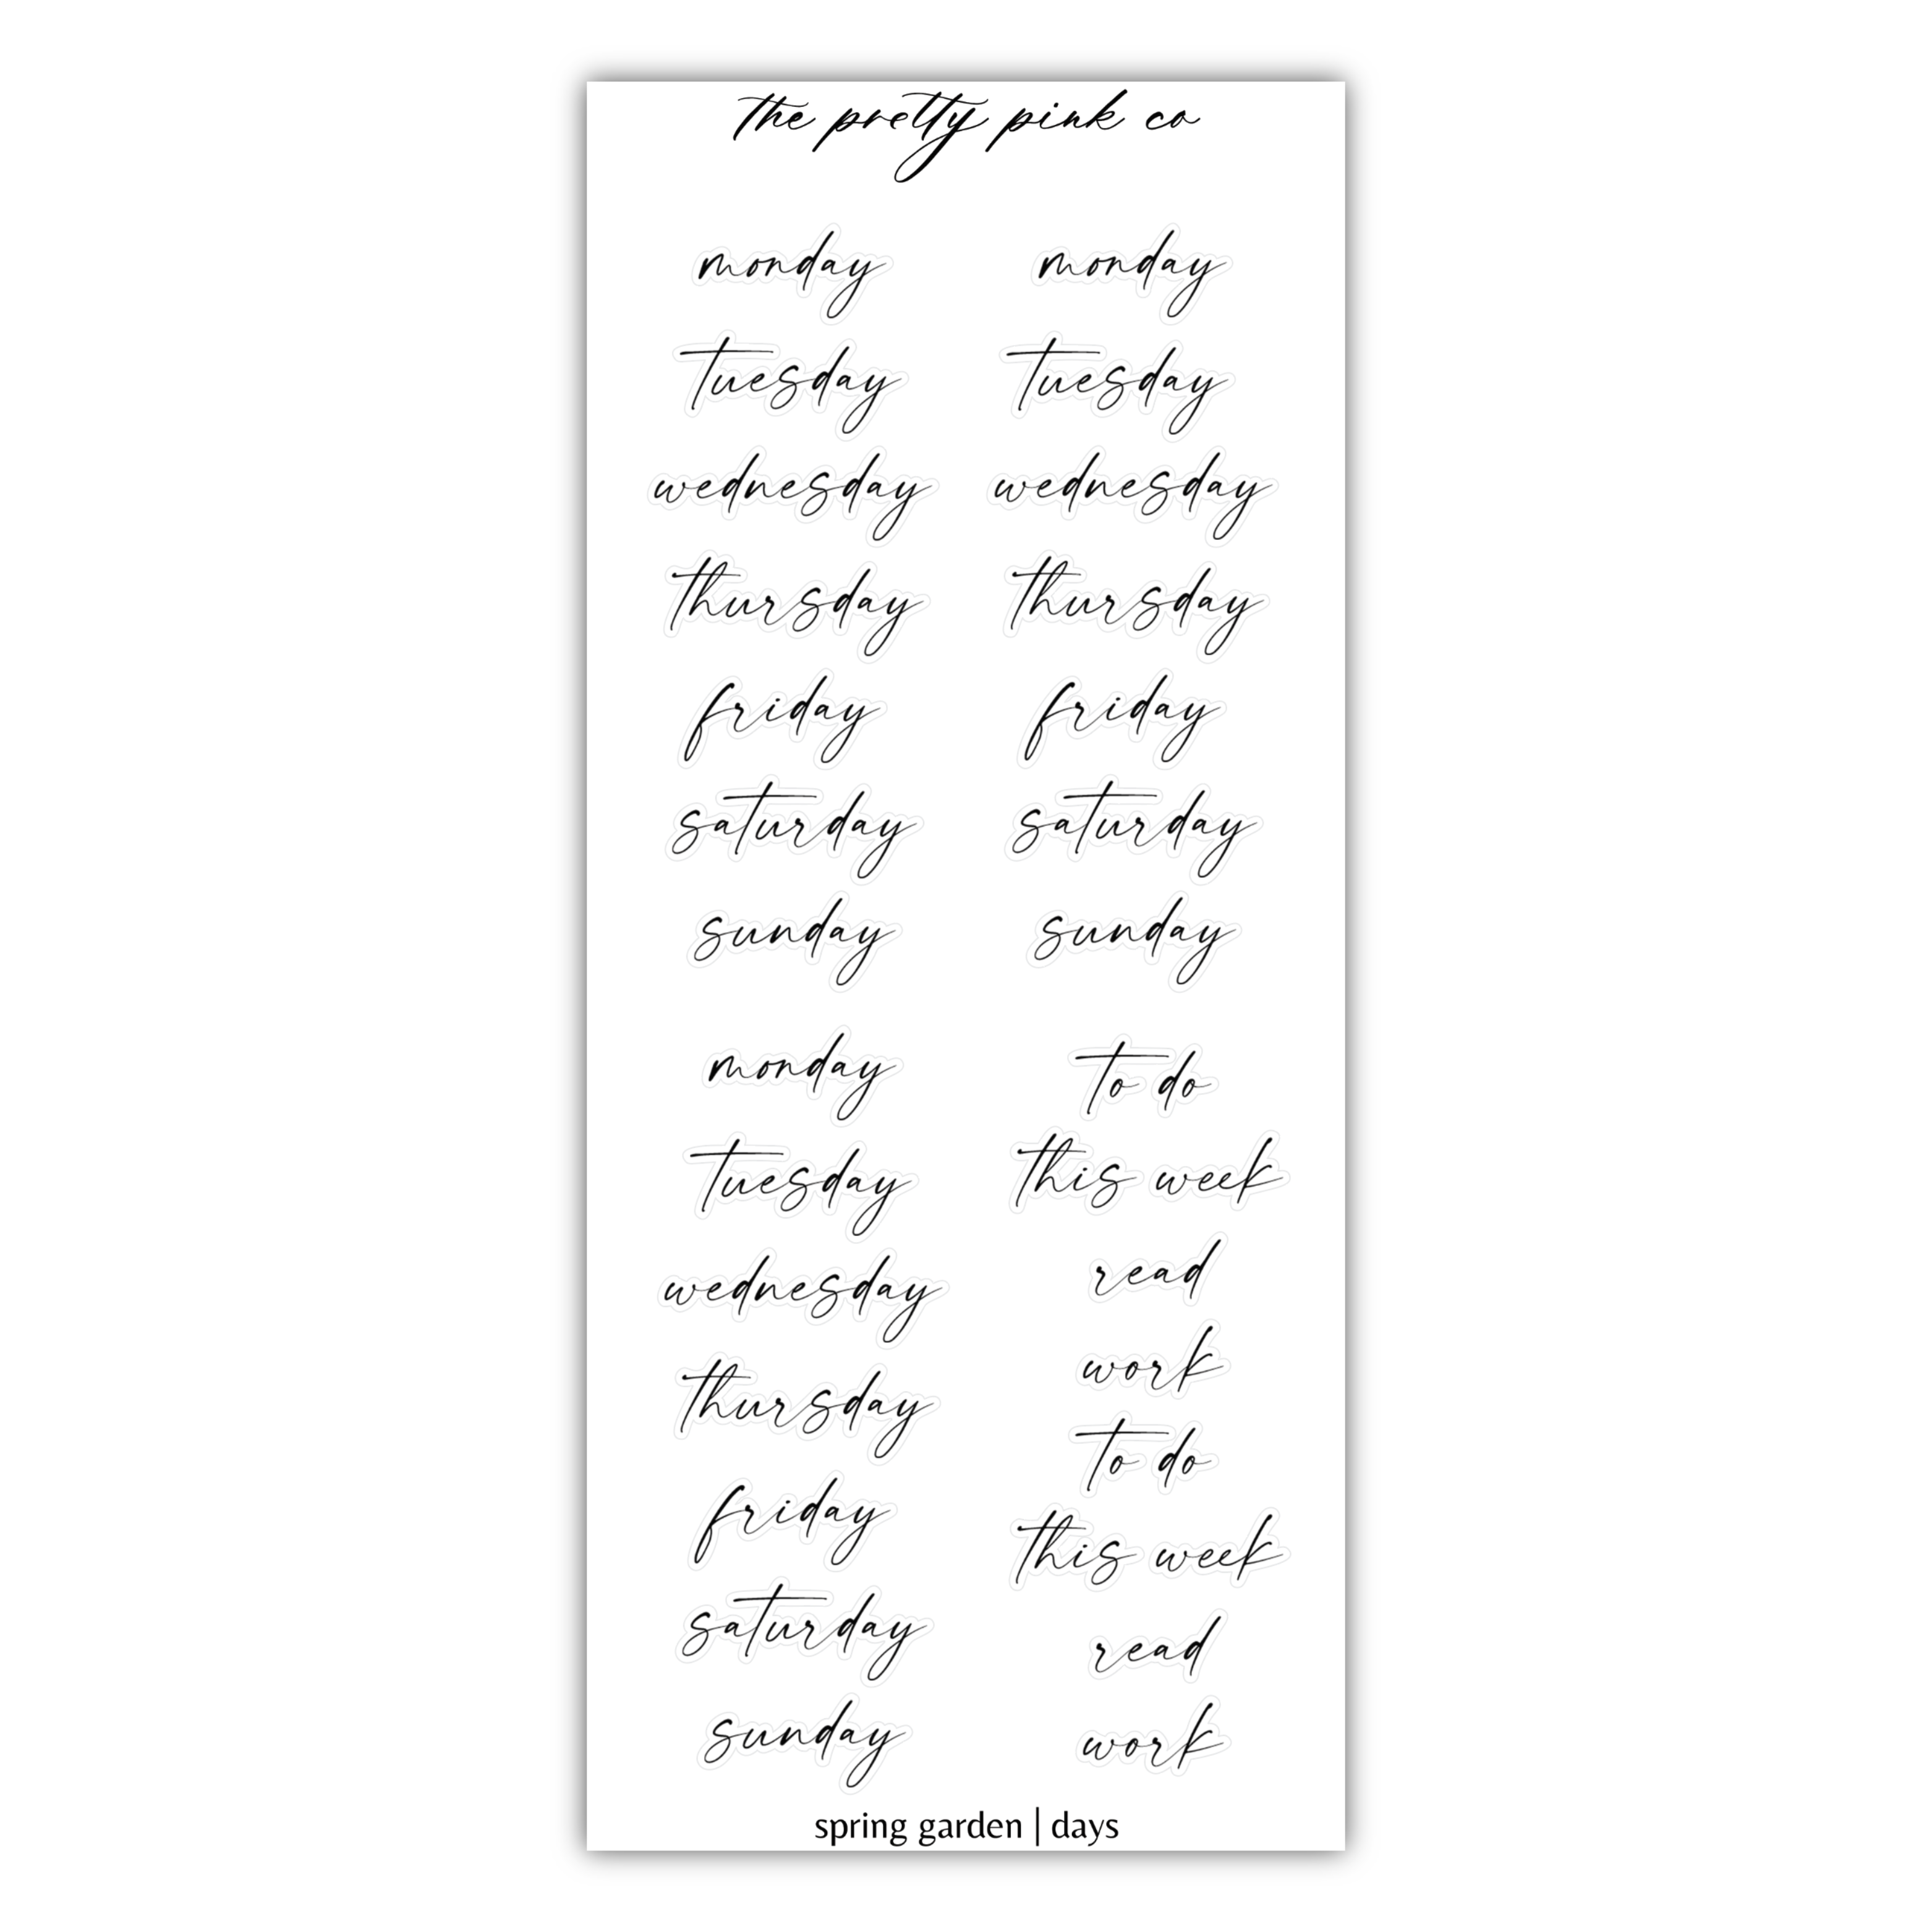 the pretty pink co
monday monday
tuesday tuesday
wednesday wednesday
thursday thursday
friday friday
saturday saturday
sunday sunday
monday to do
tuesday this week
wednesday read
thursday work
friday to do
saturday this week
sunday read
work
spring garden | days